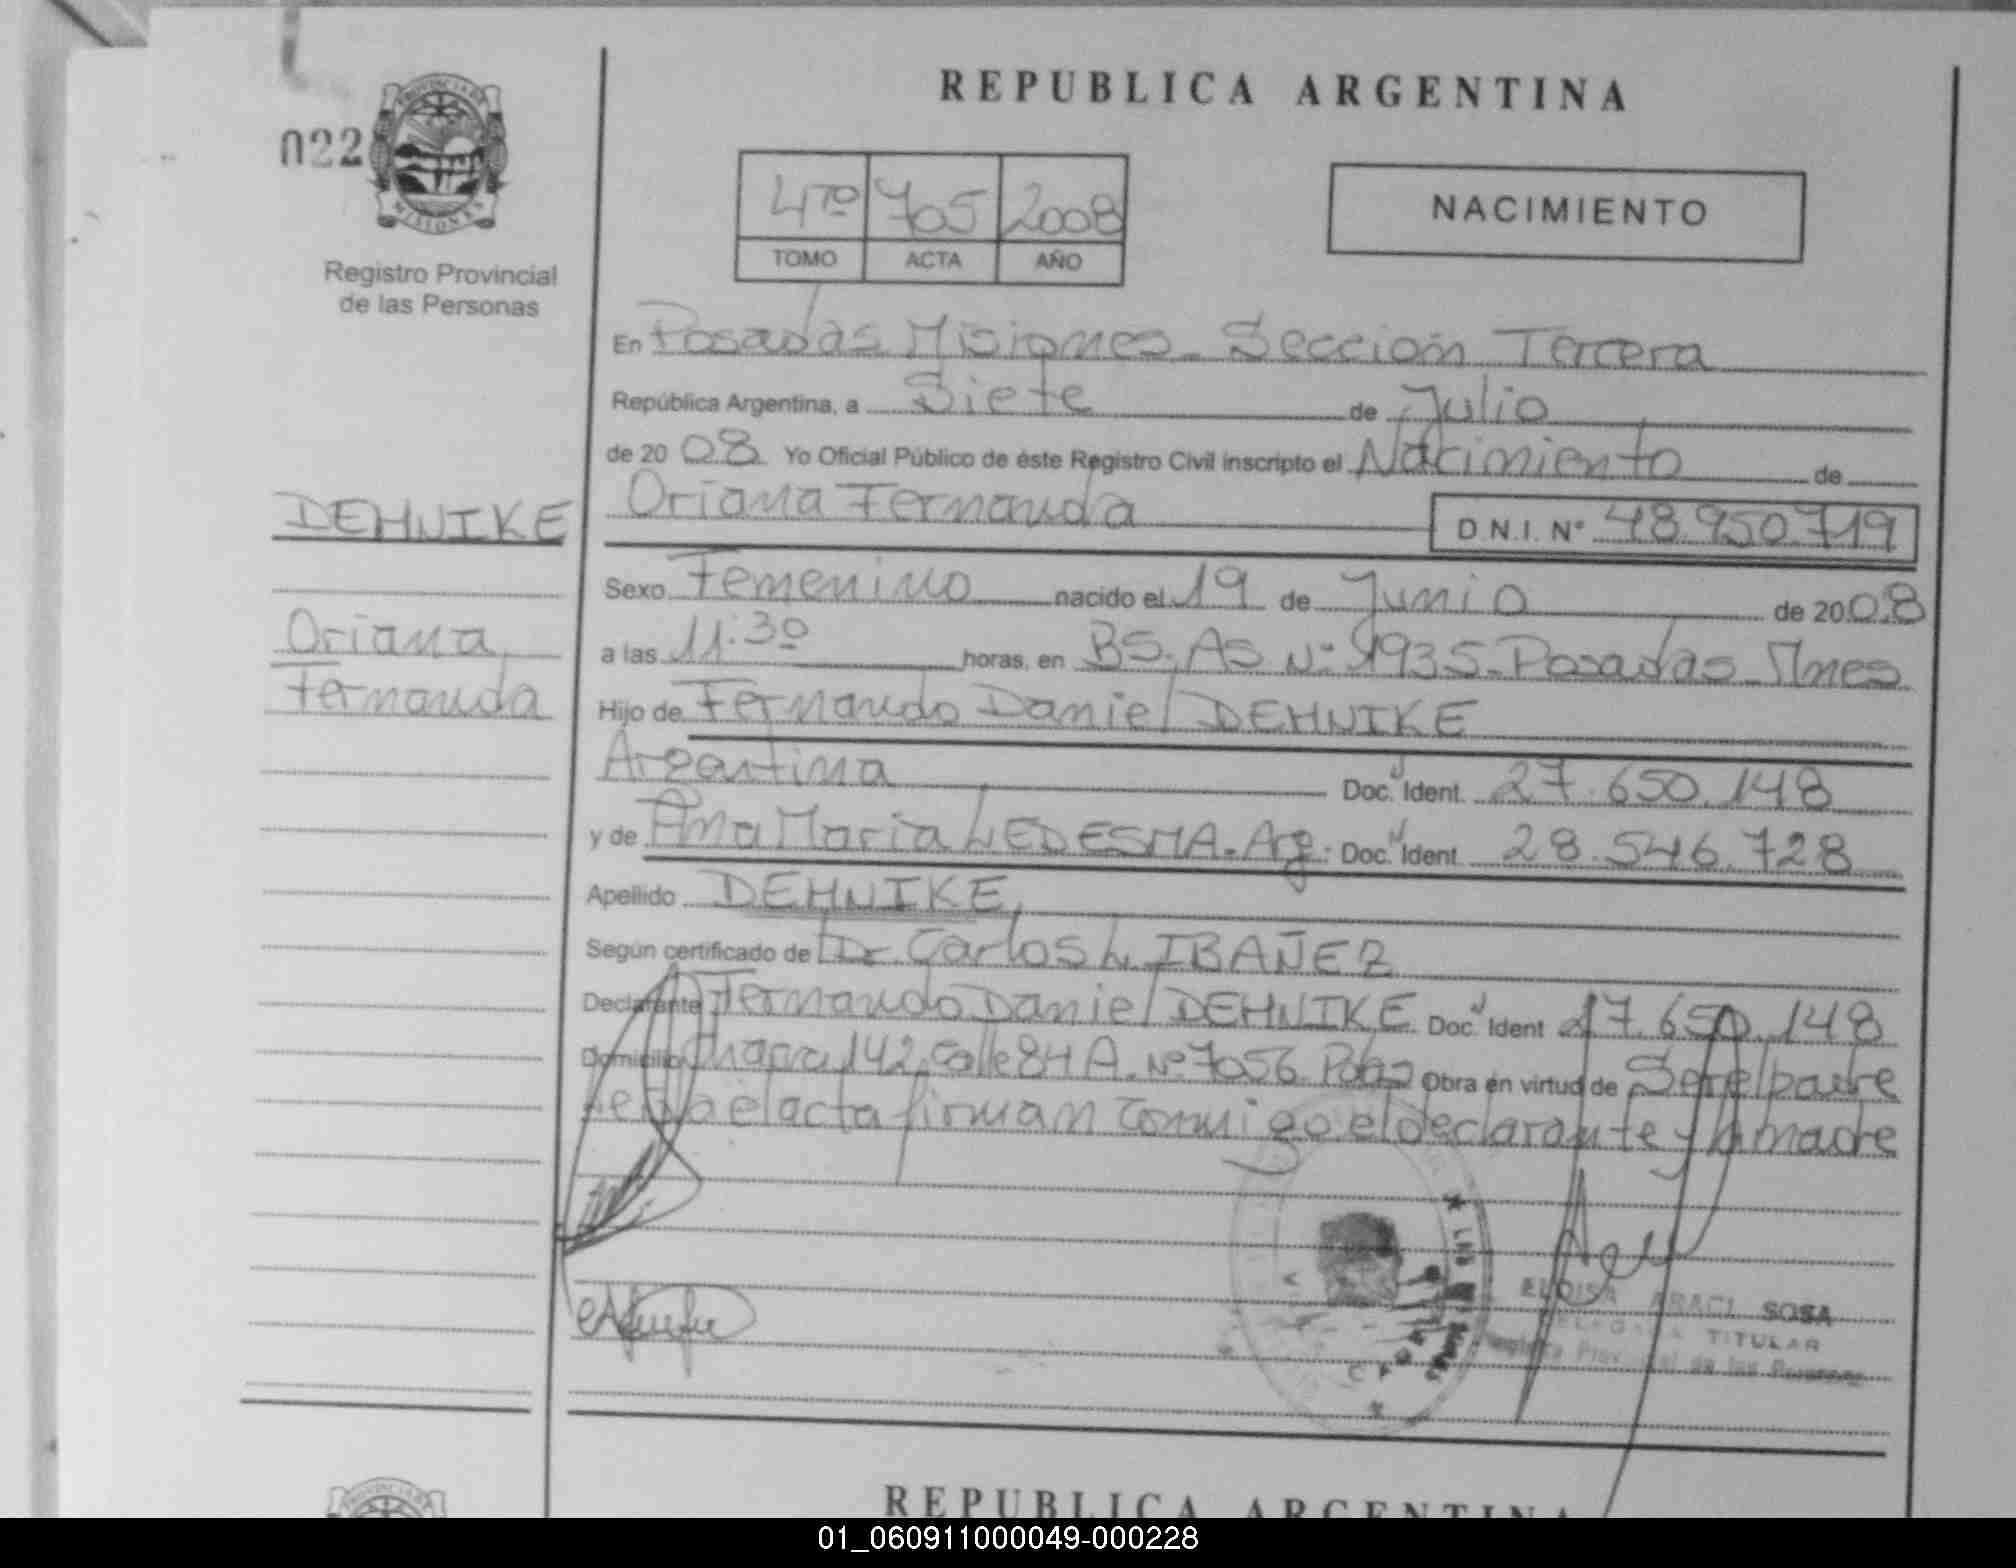 REPUBLICA ARGENTINA
022
PROVINCIA DE
MISIONES
Registro Provincial
de las Personas
4to 705 2008
TOMO ACTA AÑO
NACIMIENTO
En Posadas Misiones - Sección Tercera
República Argentina, a Siete de Julio
de 2008 Yo Oficial Público de éste Registro Civil inscripto el Nacimiento de
DEHNIKE
Oriana Fernanda
D.N.I. Nº 48.950.719
Sexo Femenino nacido el 19 de Junio de 2008
Oriana
Fernanda
a las 11:30 horas, en BS. AS Nº 1935 - Posadas - Mnes
Hijo de Fernando Daniel DEHNIKE
Argentina Doc. Ident. 27.650.148
y de Ana Maria LEDESMA - Arg. Doc. Ident. 28.546.728
Apellido DEHNIKE
Según certificado de Dr. Carlos L. IBAÑEZ
Declarante Fernando Daniel DEHNIKE Doc. Ident 27.650.148
Domicilio Chacra 142, Calle 84 A. Nº 7056 Pdas Obra en virtud de Ser el padre
el acta firman conmigo el declarante y la madre
ELOISA ARACI SOSA
TITULAR
de las Personas
REPUBLICA ARGENTINA
01_060911000049-000228